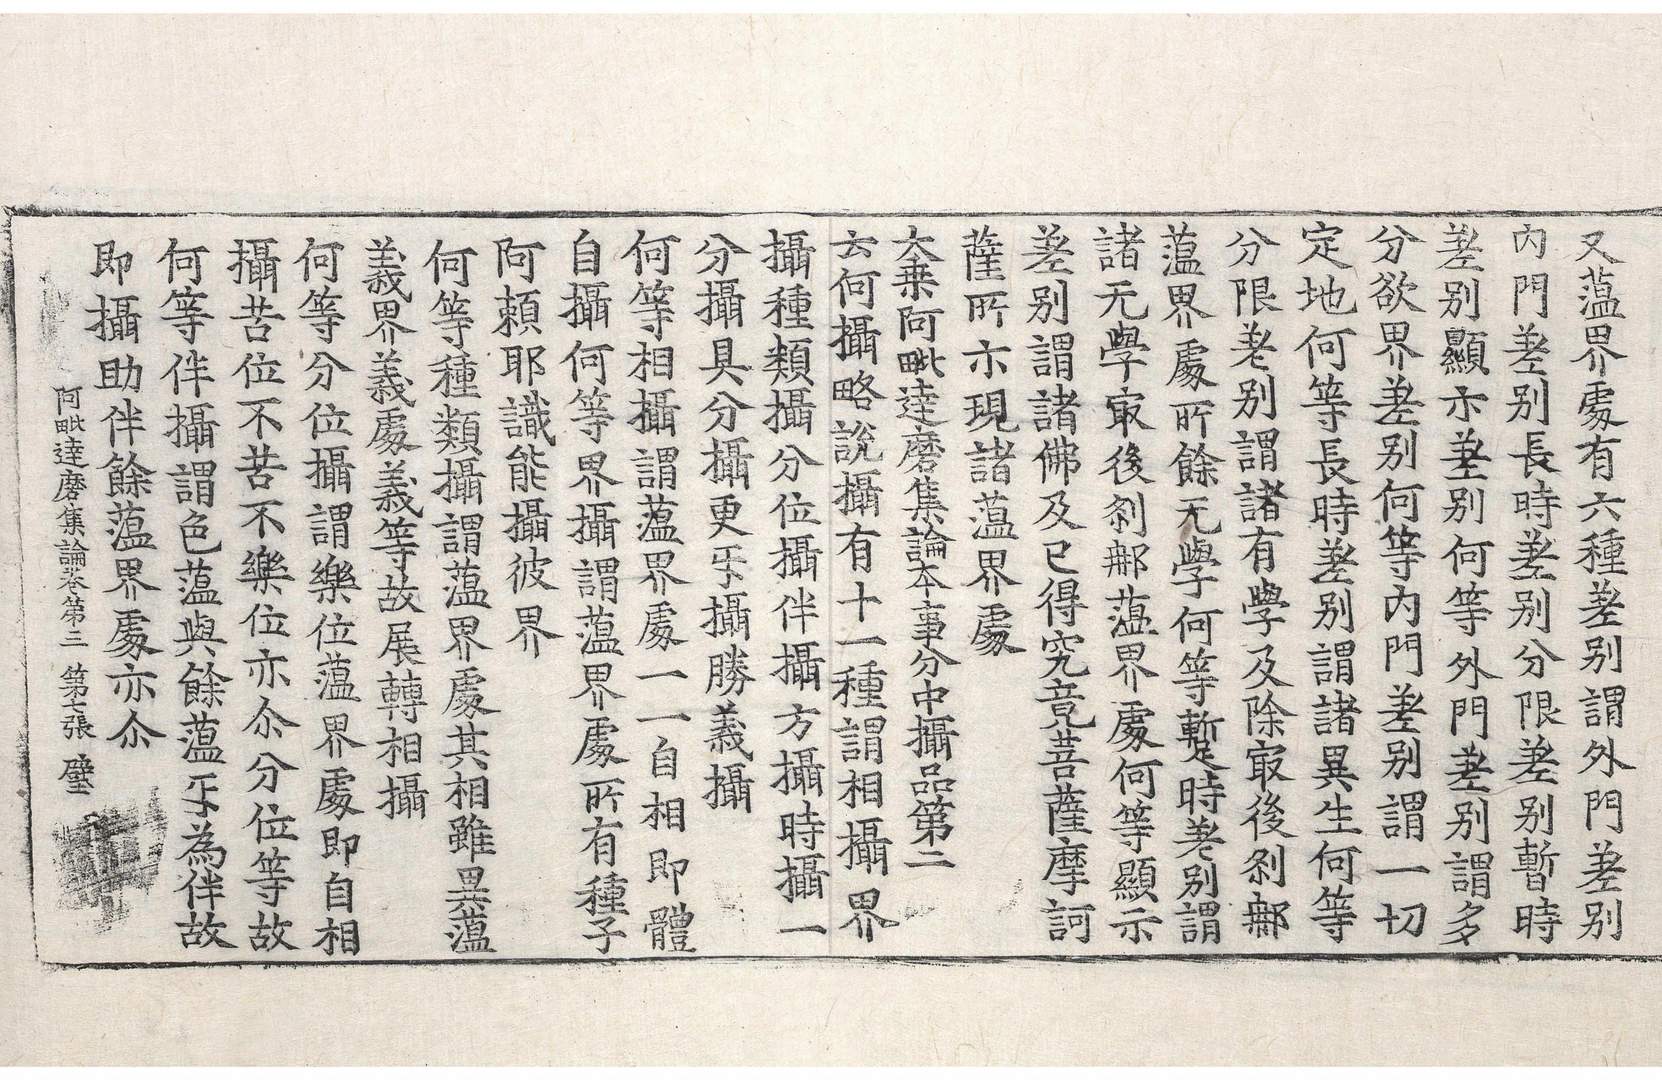 又蘊界處有六種差別謂外門差別
內門差別長時差別分限差別暫時
差別顯示差別何等外門差別謂多
分欲界差別何等內門差別謂一切
定地何等長時差別謂諸異生何等
分限差別謂諸有學及除㝡後刹那
蘊界處所餘无學何等暫時差別謂
諸无學㝡後刹那蘊界處何等顯示
差別謂諸佛及已得究竟菩薩摩訶
薩所示現諸蘊界處
大乗阿毗達磨集論本事分中攝品第二
云何攝略說攝有十一種謂相攝界
攝種類攝分位攝伴攝方攝時攝一
分攝具分攝更乐攝勝義攝
何等相攝謂蘊界處一一自相即體
自攝何等界攝謂蘊界處所有種子
阿賴耶識能攝彼界
何等種類攝謂蘊界處其相雖異蘊
義界義處義等故展轉相攝
何等分位攝謂樂位蘊界處即自相
攝苦位不苦不樂位亦尒分位等故
何等伴攝謂色蘊與餘蘊乐為伴故
即攝助伴餘蘊界處亦尒
阿毗達磨集論卷第三　第七張　璧